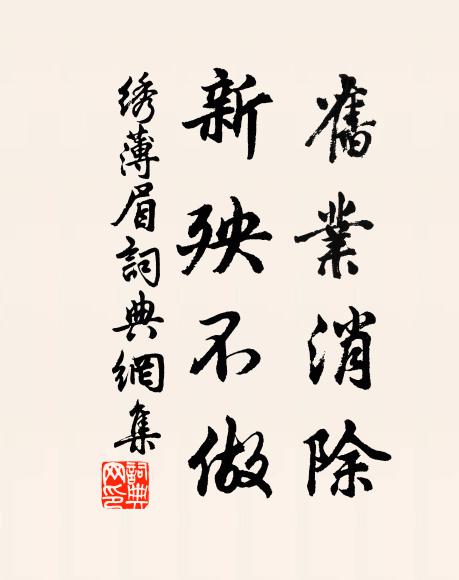 舊業消除
新殃不做
绣薄眉詞典網集
詞典网印